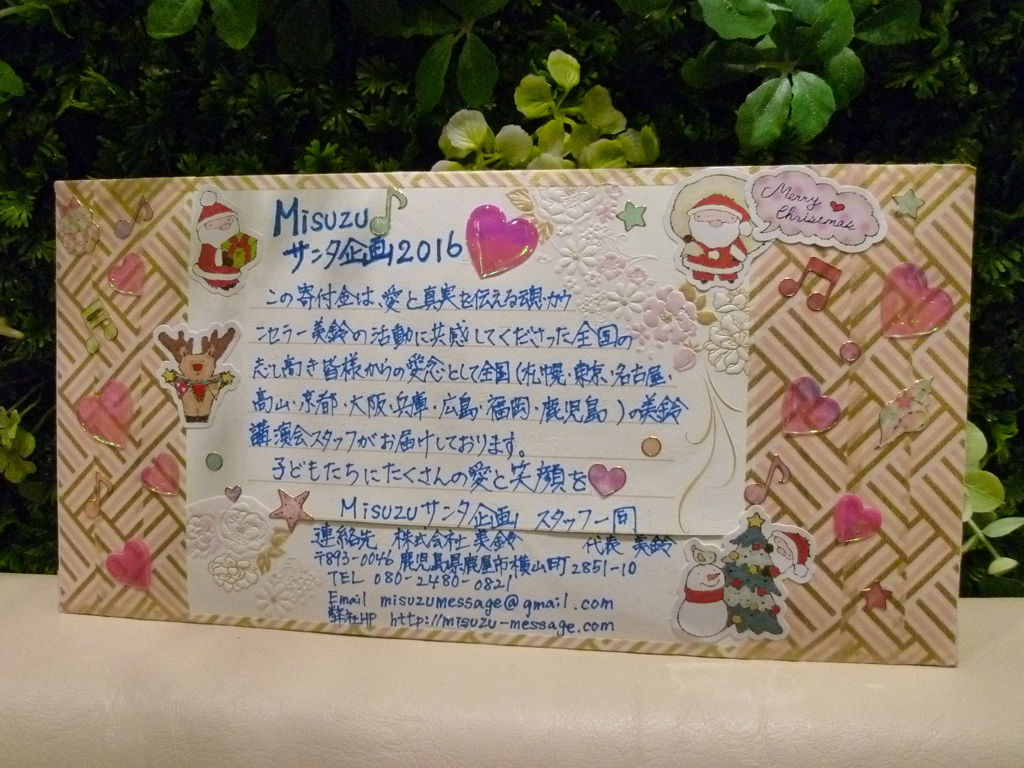 Misuzu
サンタ企画2016
Merry
Christmas
この寄付金は、愛と真実を伝える魂・カウ
ンセラー美鈴の活動に共感してくださった全国の
志し高き皆様からの愛念として全国(札幌・東京・名古屋・
高山・京都・大阪・兵庫・広島・福岡・鹿児島)の美鈴
講演会スタッフがお届けしております。
子どもたちにたくさんの愛と笑顔を
Misuzuサンタ企画 スタッフ一同
連絡先 株式会社 美鈴 代表 美鈴
〒893-0046 鹿児島県鹿屋市横山町2851-10
TEL 080-2480-0821
Email misuzumessage@gmail.com
弊社HP http://misuzu-message.com